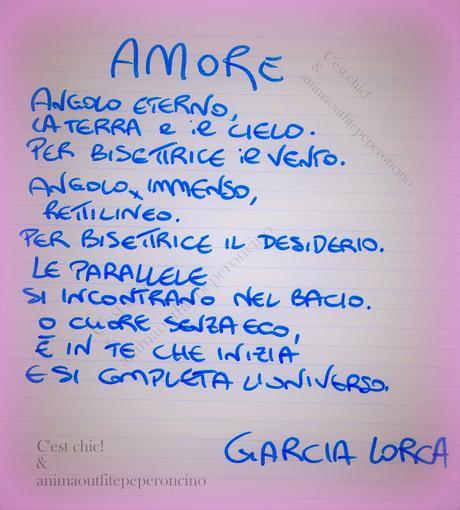 AMORE
ANGOLO ETERNO,
LA TERRA E IL CIELO.
PER BISETTRICE IL VENTO.
ANGOLO IMMENSO,
RETTILINEO.
PER BISETTRICE IL DESIDERIO.
LE PARALLELE
SI INCONTRANO NEL BACIO.
O CUORE SENZA ECO,
È IN TE CHE INIZIA
E SI COMPLETA L'UNIVERSO.
GARCIA LORCA
C'est chic!
&
animaoutfitepeperoncino
C'est chic!
&
animaoutfitepeperoncino
C'est chic!
&
animaoutfitepeperoncino